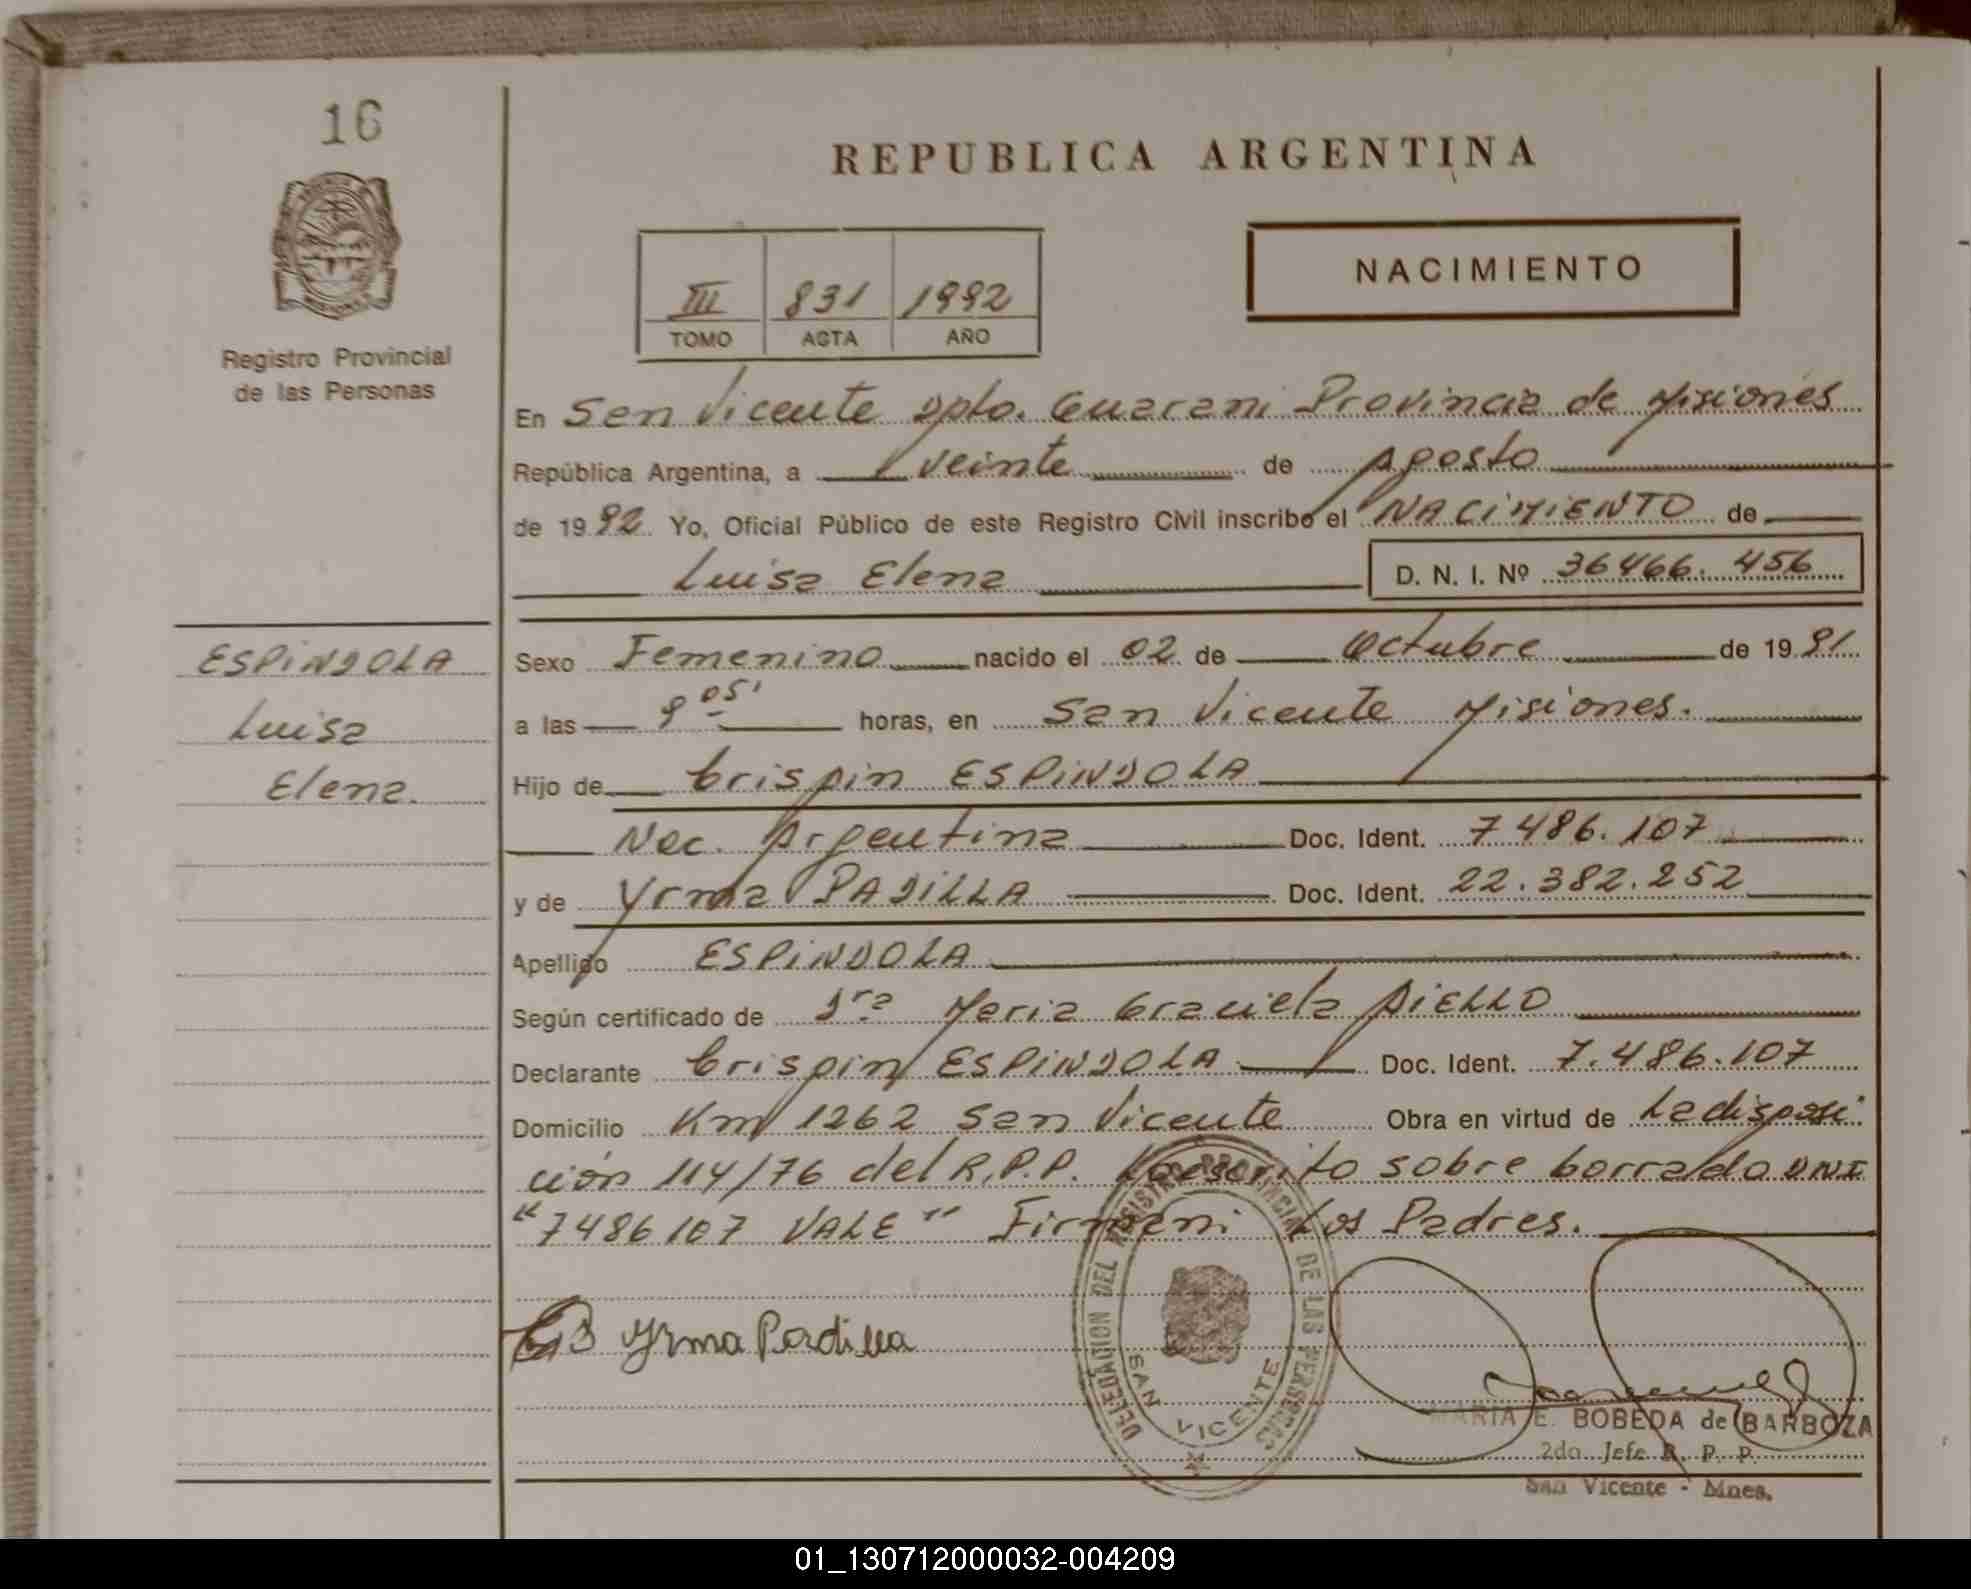 16
REPUBLICA ARGENTINA
NACIMIENTO
III 831 1992
TOMO ACTA AÑO
Registro Provincial
de las Personas
En San Vicente Dpto. Guarani Provincia de Misiones
República Argentina, a veinte de Agosto
de 1992 Yo, Oficial Público de este Registro Civil inscribo el NACIMIENTO de
Luisa Elena D. N. I. Nº 36466.456
ESPINDOLA
Luisa
Elena.
Sexo Femenino nacido el 02 de Octubre de 1991
a las 9 05' horas, en San Vicente Misiones.
Hijo de Crispin ESPINDOLA
Nac. Argentina Doc. Ident. 7486.107
y de Yrma PADILLA Doc. Ident. 22.382.252
Apellido ESPINDOLA
Según certificado de Dra Maria Graciela AIELLO
Declarante Crispin ESPINDOLA Doc. Ident. 7.486.107
Domicilio Km 1262 San Vicente Obra en virtud de La disposi
ción 114/76 del R.P.P. Lo escrito sobre borrado DNI
"7486107 VALE" Firman: Los Padres.
Yrma Padilla
DELEGACION DEL REGISTRO PROVINCIAL DE LAS PERSONAS
SAN VICENTE
MARIA E. BOBEDA de BARBOZA
2do. Jefe R. P. P.
San Vicente - Mnes.
01_130712000032-004209